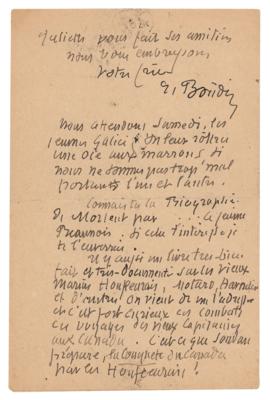 Juliette vous fait ses amitiés
nous vous embrassons
votre frère
E. Boudin
Nous attendons Samedi, les
jeunes et on leur rôtira
une oie aux marrons si
nous ne sommes pas trop mal
portants l'un et l'autre.
Connais tu la Biographie
de par
. si cela t'intéresse je
te l'enverrai.
Il y a aussi un livre très bien
fait et très documenté sur les vieux
Marins Honfleurais, Motard,
et d'autres on vient de me l'adresser
et c'est fort curieux ces combats
ces voyages des vieux Capitaines
aux Canada. C'est ce que Soudan
prépare, la Conquête du Canada
par les Honfleurais!